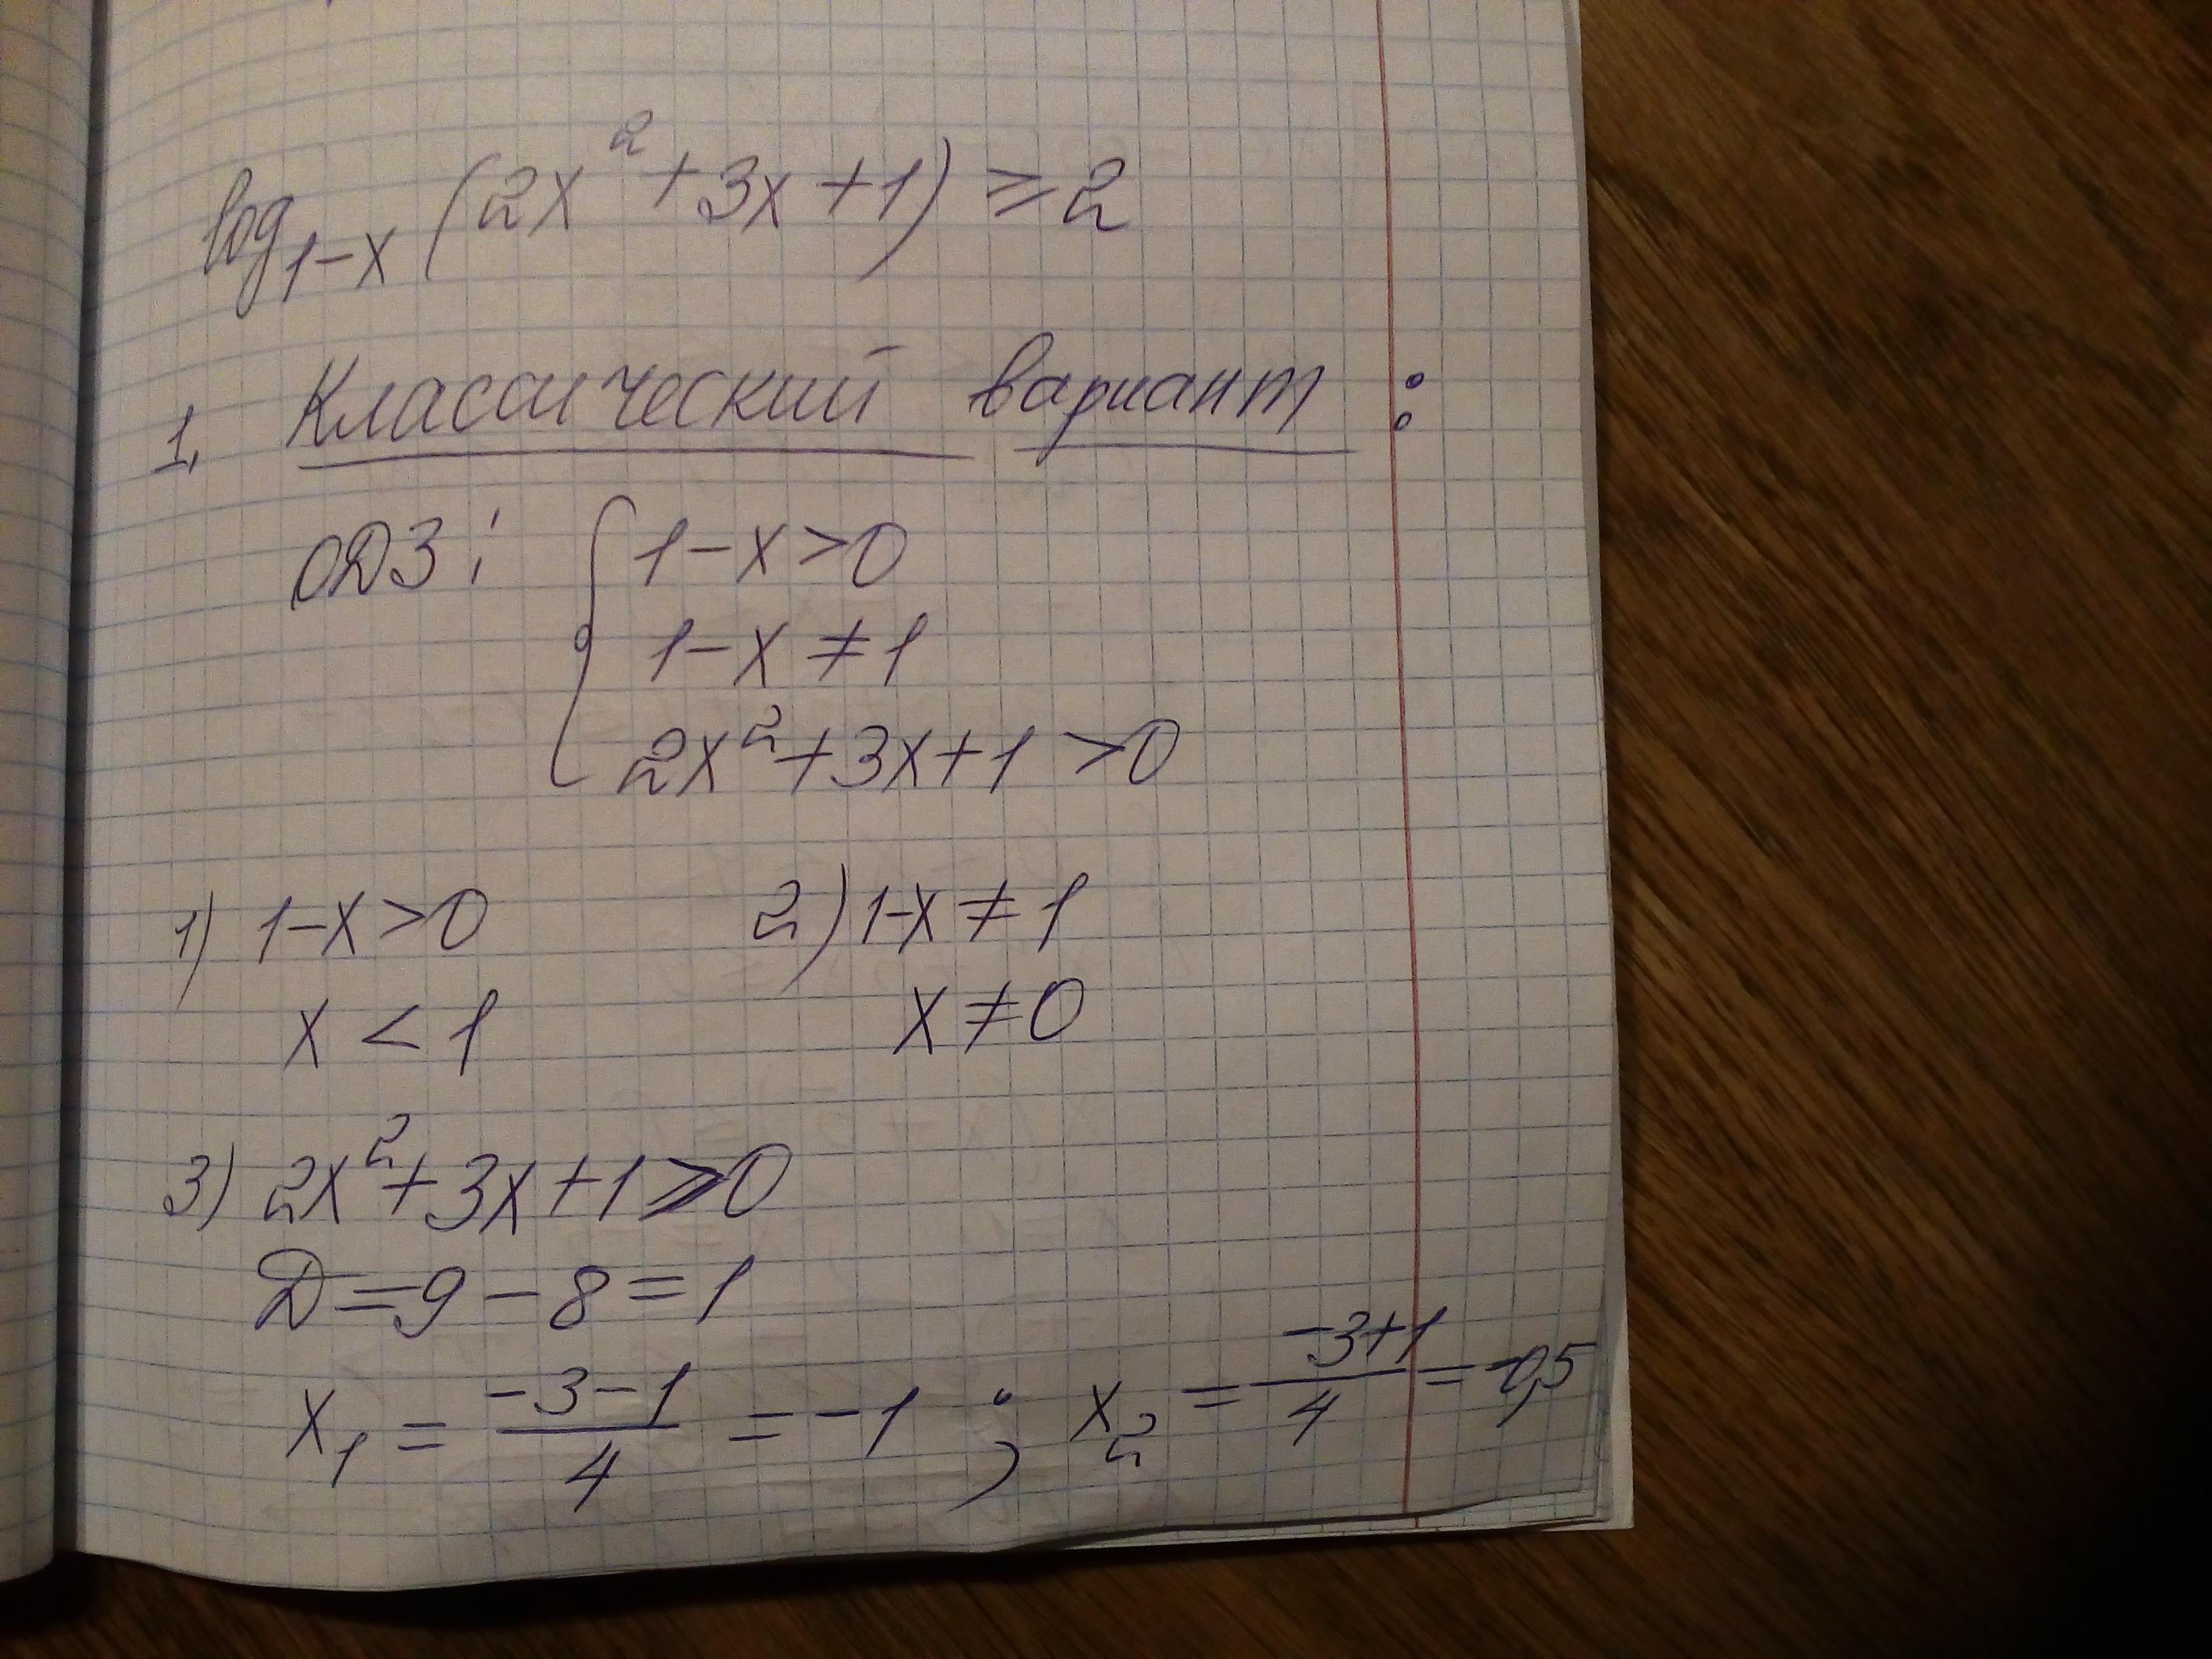 log₁₋ₓ (2x² + 3x + 1) ⩾ 2
1. Классический вариант :
ОДЗ : { 1-x > 0
1-x ≠ 1
2x² + 3x + 1 > 0
1) 1-x > 0 2) 1-x ≠ 1
x < 1 x ≠ 0
3) 2x² + 3x + 1 > 0
D = 9 - 8 = 1
x₁ = (-3-1)/4 = -1 ; x₂ = (-3+1)/4 = -0,5